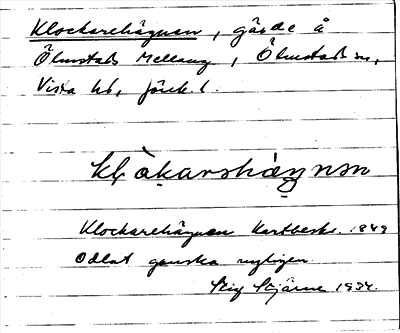 Klockarehägnan, gärde å
Ölmstads Mellang, Ölmstads sn,
Vista hd, Jönk. l.
klòkarshàgnən
Klockarehägnan Kartbeskr. 1849
Odlat ganska nyligen.
Stig Stjärne 1934.